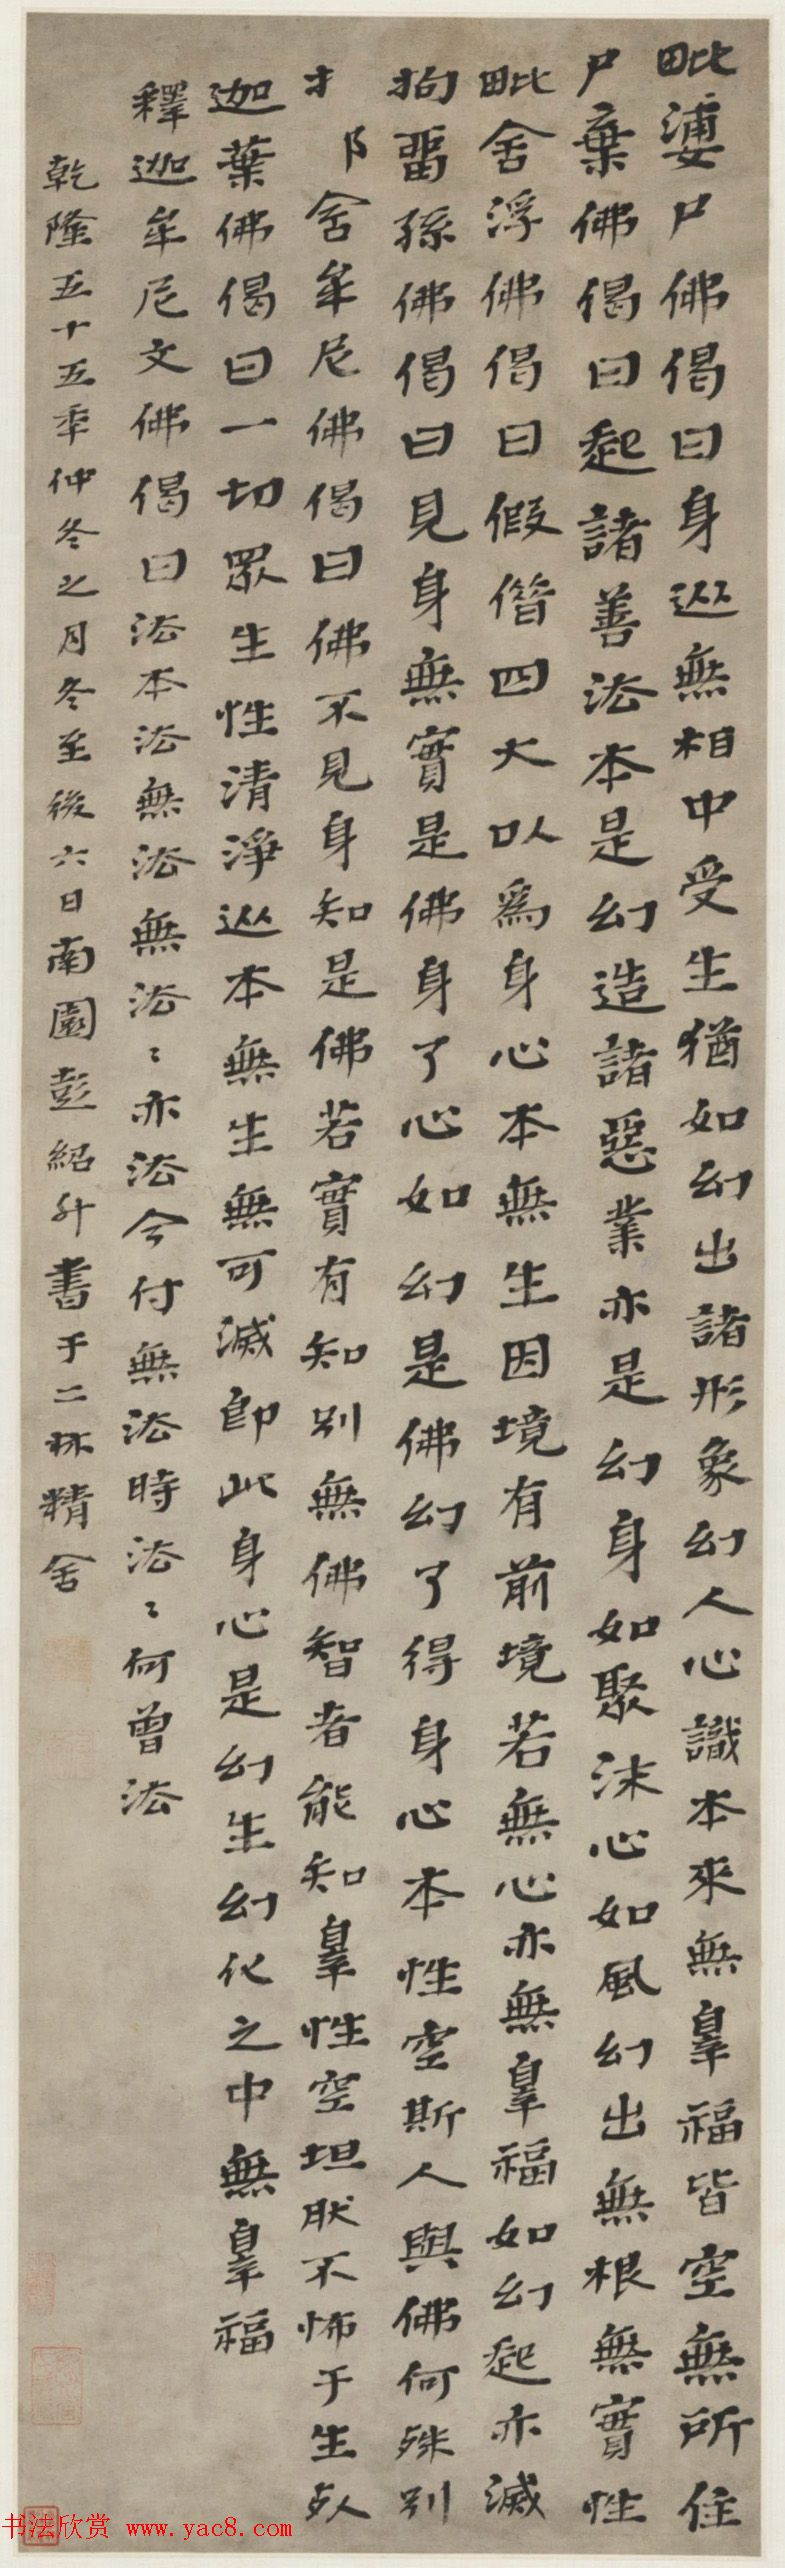 毗婆尸佛偈曰身從無相中受生猶如幻出諸形象幻人心識本來無辠福皆空無所住
尸棄佛偈曰起諸善法本是幻造諸惡業亦是幻身如聚沫心如風幻出無根無實性
毗舍浮佛偈曰假借四大以為身心本無生因境有前境若無心亦無辠福如幻起亦滅
拘留孫佛偈曰見身無實是佛身了心如幻是佛幻了得身心本性空斯人與佛何殊別
舍牟尼佛偈曰佛不見身知是佛若實有知別無佛智者能知辠性空坦然不怖于生死
迦葉佛偈曰一切眾生性清淨從本無生無可滅即此身心是幻生幻化之中無辠福
釋迦牟尼文佛偈曰法本法無法無法法〻亦法今付無法時法〻何曾法
乾隆五十五年仲冬之月冬至後六日南園彭紹升書于二林精舍
书法欣赏 www.yac8.com